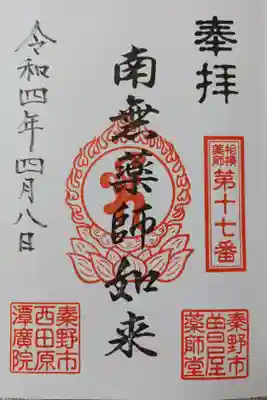 奉拝
相模
薬師
第十七番
秦野市
曲屋
薬師堂
南無薬師如来
令和四年四月八日
秦野市
西田原
潭廣院